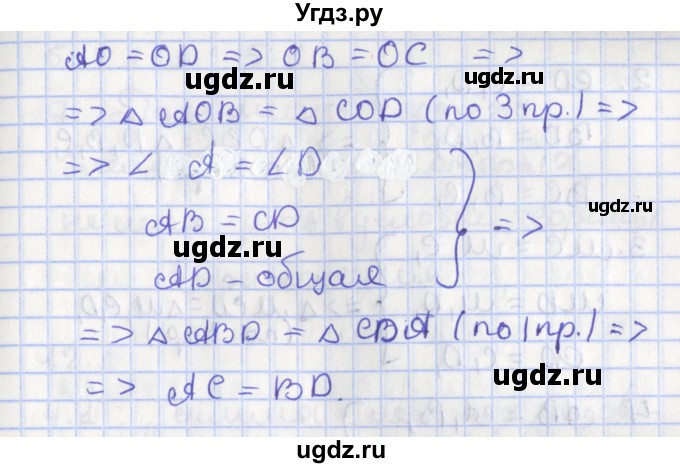 Угдз.ру
AO = OD => OB = OC =>
ugdz.ru
ugdz.ru
=> △ AOB = △ COD (по 3 пр.) =>
=> ∠ A = ∠D
ugdz.ru
AB = CD
=>
ugdz.ru
AD - общая
=> △ ABD = △ CBA (по 1 пр.) =>
=> AC = BD.
ugdz.ru
ugdz.ru